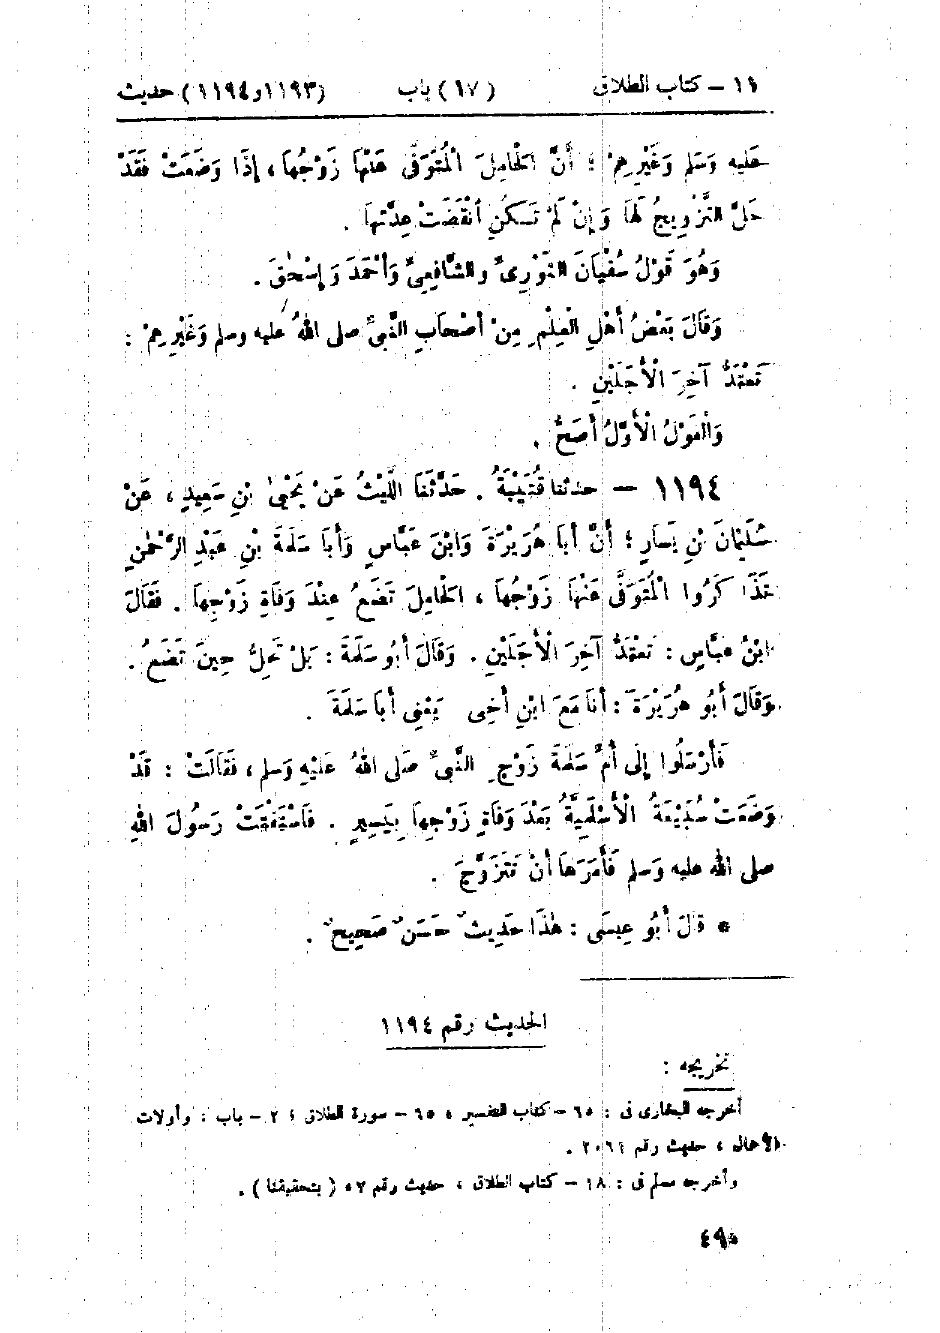 ١١ – كتاب الطلاق (١٧) باب (١١٩٣و١١٩٤) حديث
عَلَيه وَسَلم وَغَيْرِهِمْ ؛ أَنَّ الْحَامِلَ الْمُتَوَفَّى عَنْهَا زَوْجُهَا ، إِذَا وَضَعَتْ فَقَدْ
حَلَّ التَّزْوِيجُ لَهَا وَإِنْ لَمْ تَكُنِ انْقَضَتْ عِدَّتُهَا .
وَهُوَ قَوْلُ سُفْيَانَ الثَّوْرِىِّ والشَّافِعِىِّ وَأَحْمَدَ وَإِسْحٰقَ .
وَقَالَ بَعْضُ أَهْلِ الْعِلْمِ مِنْ أَصْحَابِ النَّبِىِّ صلى اللهُ عليه وسلم وَغَيْرِهِمْ :
تَعْتَدُّ آخِرَ الْأَجَلَيْنِ .
وَالْقَوْلُ الْأَوَّلُ أَصَحُّ .
١١٩٤ – حدثنا قُتَيْبَةُ . حَدَّثَنَا اللَّيْثُ عَنْ يَحْيَىٰ بْنِ سَعِيدٍ ، عَنْ
سُلَيْمَانَ بْنِ يَسَارٍ ؛ أَنَّ أَبَا هُرَيْرَةَ وَابْنَ عَبَّاسٍ وَأَبَا سَلَمَةَ بْنِ عَبْدِ الرَّحْمٰنِ
تَذَاكَرُوا الْمُتَوَفَّى عَنْهَا زَوْجُهَا ، الْحَامِلَ تَضَعُ عِنْدَ وَفَاةِ زَوْجِهَا . فَقَالَ
ابْنُ عَبَّاسٍ : تَعْتَدُّ آخِرَ الْأَجَلَيْنِ . وَقَالَ أَبُو سَلَمَةَ : بَلْ تَحِلُّ حِينَ تَضَعُ .
وَقَالَ أَبُو هُرَيْرَةَ : أَنَا مَعَ ابْنِ أَخِى يَعْنِى أَبَا سَلَمَةَ .
فَأَرْسَلُوا إِلَى أُمِّ سَلَمَةَ زَوْجِ النَّبِىِّ صَلى اللهُ عَلَيْهِ وَسَلم ، فَقَالَتْ : قَدْ
وَضَعَتْ سُبَيْعَةُ الْأَسْلَمِيَّةُ بَعْدَ وَفَاةِ زَوْجِهَا بِيَسِيرٍ . فَاسْتَفْتَتْ رَسُولَ اللهِ
صلى الله عليه وَسلم فَأَمَرَهَا أَنْ تَتَزَوَّجَ .
* قَالَ أَبُو عِيسَى : هٰذَا حَدِيثٌ حَسَنٌ صَحِيحٌ .
الحديث رقم ١١٩٤
تخريجه :
أخرجه البخارى فى : ٦٥ – كتاب التفسير ، ٦٥ – سورة الطلاق ؛ ٢ – باب : وأولات
الأحمال ، حديث رقم ٢٠٦١ .
وأخرجه مسلم فى : ١٨ – كتاب الطلاق ، حديث رقم ٥٧ ( بتحقيقنا ) .
٤٩٥